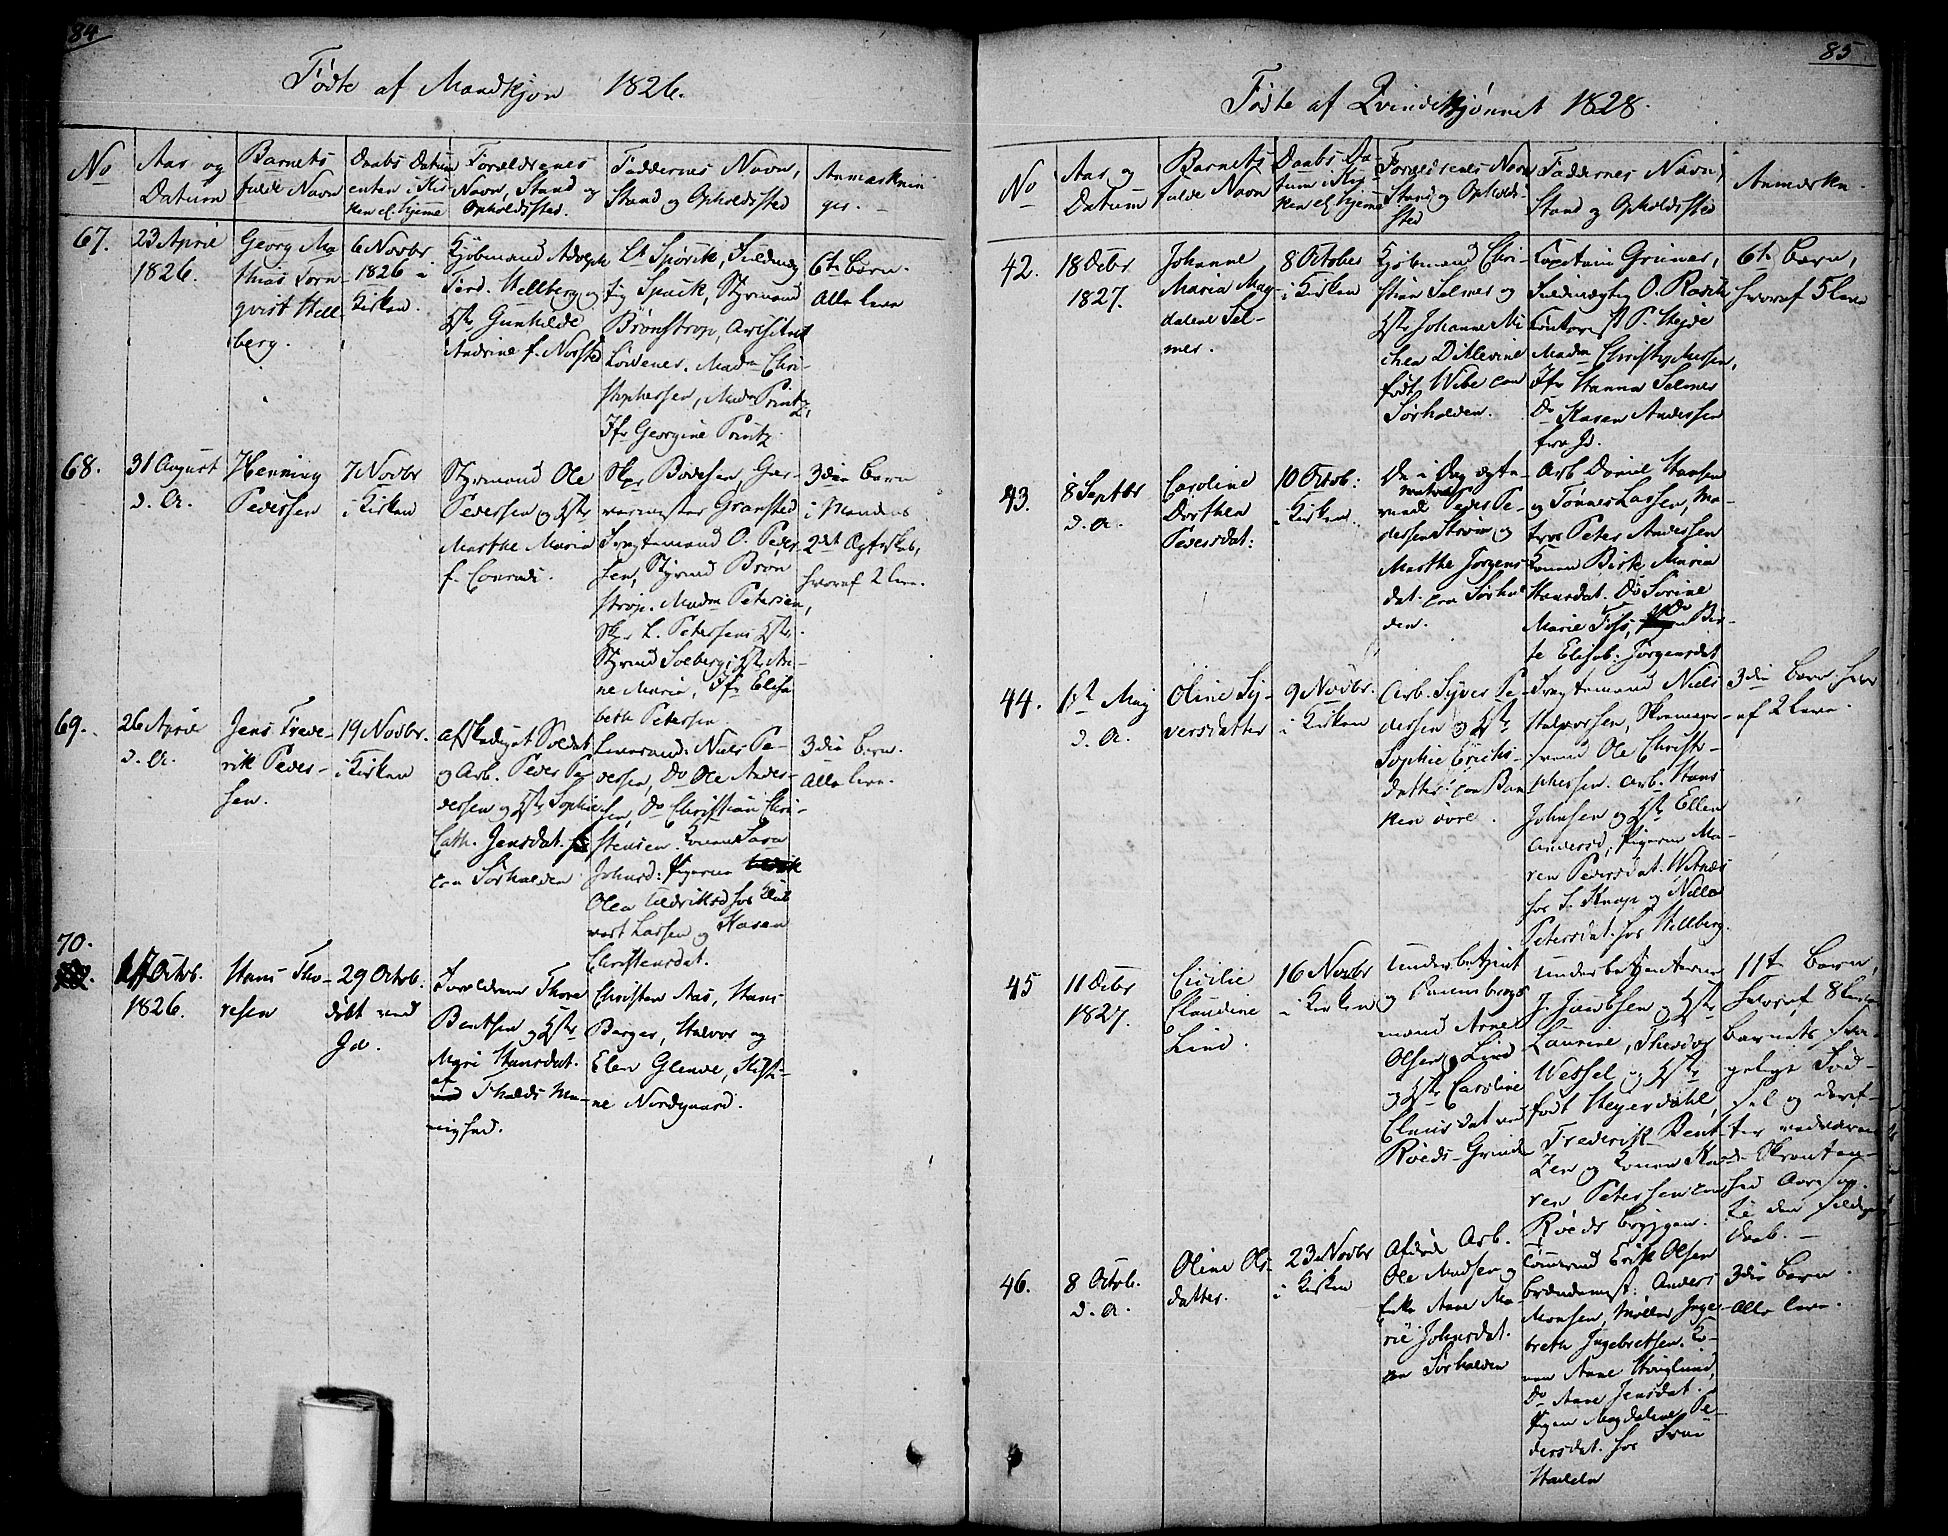 84
Födte af Mandkjøn 1826.
No
Aar og
Datum
Barnets
fulde Navn
Daabs Datum
enten i Kir-
ken el. hjeme
Forældrenes
Navn, Stand og
Opholdssted.
Faddernes Navn,
Stand og Opholdssted
Anmærknin
ger.
67.
23 April
1826.
Georg Ma-
thias Torn-
qvist Hell
berg.
6 Novbr
1826 i
Kirken
Kjøbmand Adolph
Ferd. Hellberg og
Hstr Gunhilde
Andrine f. Norsted
Lt Spörik, Fuldmæg
tig Spark, Styrmand
Brønstrop,
Lövener. Madm Chri-
stophersen, Madm Printz,
Jfr Georgine Printz.
6te Barn.
Alle leve
68.
31 August
d. A.
Henning
Pedersen
7 Novbr
i Kirken
Styrmand Ole
Pedersen og Hstr
Marthe Maria
f. Conradi.
Skpr Bodesen, Gar-
vermester Gransted
Fragtemand O. Peder-
sen, Styrmd Brøn
strop. Madm Petersen,
Skpr L. Petersens Hstr.
Styrmd Solberg; Hstr An-
ne Maria, Jfr Elisa
beth Petersen.
3die Barn
i Mandens
2det Ægteskab,
hvoraf 2 leve.
69.
26 April
d. A.
Jens Frede-
rik Peder-
sen.
19 Novbr.
i Kirken
Afskediget Soldat
og Arb. Peder Pe
dersen og Hstr Sophie
Cath. Jensdat.
paa Sørhalden
Niels Pe-
dersen, Do Ole Ander-
sen, Do Christian Chri-
stensen. Konen Sara
Johnsd: Pigerne
Olea Fredriksd hos
vart Larsen og Karen
Christensdat.
3die Barn.
Alle leve.
70.
17 Octrb.
1826.
Hans Tho-
resen
29 Octrb.
døbt ved
Jd.
Forældrene Thore
Bentsen og Hstr
Mari Hansdat.
af Thalds Me-
nighed.
Christen Aas, Hans
Berger, Halvor og
Elen Glenne, Kisti-
ne Nordgaard.
85
Fødte af Qvindekjønnet 1828.
No
Aar og
Datum
Barnets
fulde Navn
Daabs Da-
tum i Kir-
ken el. hjeme
Forældrenes Navn
Stand og Opholds-
sted
Faddernes Navn,
Stand og Opholdssted
Anmærkn.
42.
18 Decbr
1827.
Johanne
Maria Mag
dalene Sel-
mer.
8 October
i Kirken
Kjøbmand Chri-
stian Selmer og
Hstr Johanne Mi
chea Ditlevine
født Wibe paa
Sørhalden.
Capitain Grüner,
Fuldmægtig O. Rosik
Contorist P. Hejde
Madm
Jfr Hanna Selmer
Do Karen Andersen
fra Jd.
6te Barn,
hvoraf 5 leve
43.
8 Septbr
d. A.
Caroline
Dorthea
Pedersdat:
10 Octob:
i Kirken.
De i Dag ægte
mand Peder Pe-
dersen Strøm og
Marthe Jørgens
dat. paa Sørhal
den.
Arb. Daniel Hansen
og Tønnes Larsen, Ma-
tros Peter Andersen
Konen Birte Maria
Hansdat. Do Sørine
Marie Foss, Do Bir-
te Elisab. Jørgensdat
44.
1ste Maj
d. A.
Oline Sy-
versdatter
9 Novbr.
i Kirken
Arb. Syver Pe
dersen og Hstr
Sophie Erichs-
datter paa Ban
ken øvre.
Fragtemand Niels
Halvorsen, Skomager-
svend Ole Christo-
phersen. Arb. Hans
Johnsen og Hstr Ellen
Andersd, Pigerne Ma-
ren Pedersdat. Witnæs
hos S. Knap og Nille
Petersdat. hos Hellberg.
3die Barn hvor
af 2 leve.
45
11 Decbr
1827.
Cicilie
Claudine
Lind.
16 Novbr
i Kirken
Underbetjent
og
mand Arne
Olsen Lind
og Hstr Caroline
Clausdat ved
Røeds-Grind
Underbetjenterne
J. Jacobsen og Hstr
Laurine, Theodor
Wessel og Hstr
født Heyerdahl,
Frederik Bent
zen og Konen Ka-
ren Petersen paa
Røeds bryggen.
11te Barn,
hvoraf 8 leve
Barnets svæ-
gelige Fød-
sel og deref-
ter vedvarende
Skranten-
hed
til den sildige
Daab.
46.
8 Octrb.
d. A.
Oline Ols-
datter.
23 Novbr
i Kirken
Afdøde Arb.
Ole Madsen og
Enke Anne Ma-
rie Johnsdat.
paa Sørhalden
Tømmermd Erik Olsen
Brændemest: Anders
Monsen, Møller Inge-
breth Ingebretsen. Ko-
nen Anne Höuglund,
Do Anne Jensdat.
Pigen Magdalene Pe-
dersdat. hos Frue
Stachelin
3die Barn.
Alle leve.